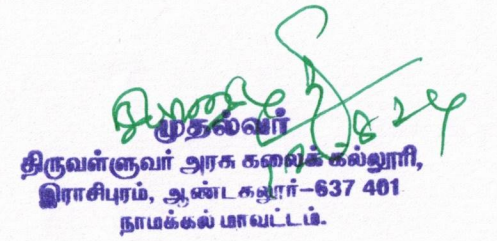 முதல்வர்
திருவள்ளுவர் அரசு கலைக் கல்லூரி,
இராசிபுரம், ஆண்டகலூர்–637 401
நாமக்கல் மாவட்டம்.